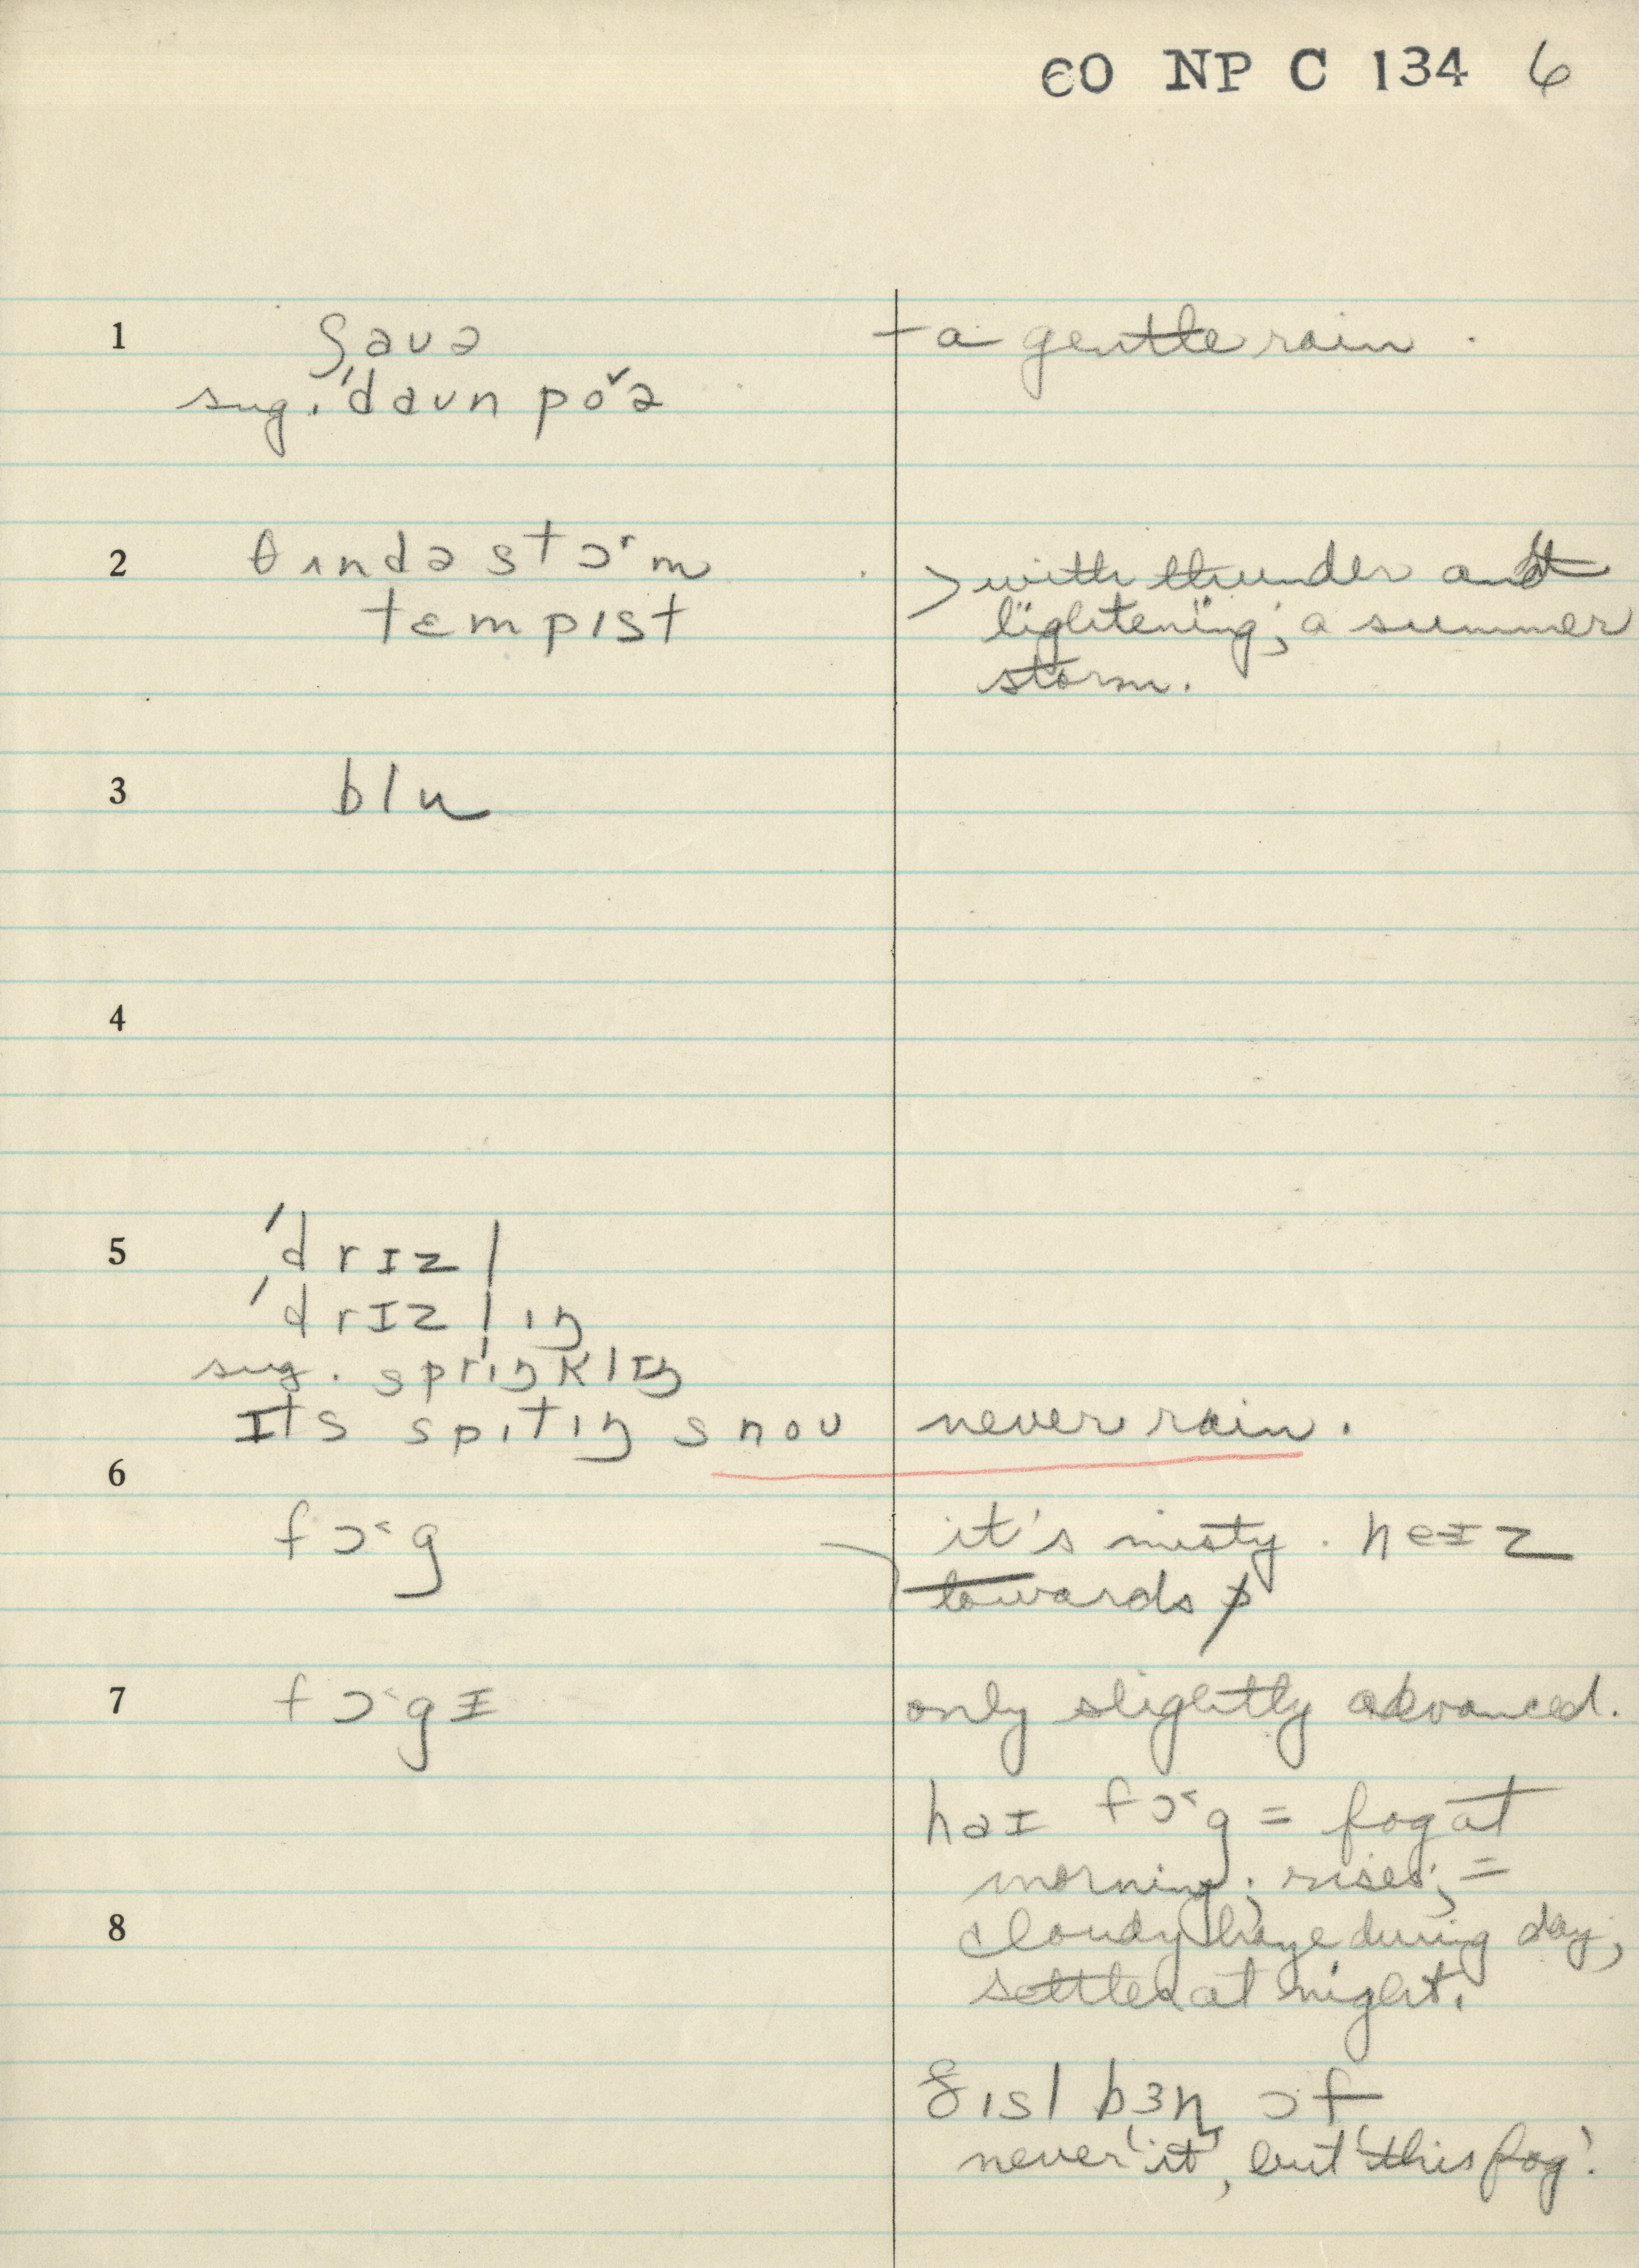 60 NP C 134 6
1 ʃaʊə — a gentle rain.
sug. 'daʊn po˅ə
2 θʌndə stɔʳm > with thunder and
tɛmpɪst "lightening"; a summer
storm.
3 blu
4
5 'drɪz l
'drɪz l̩ ɪŋ
sug. sprɪŋklɪŋ
ɪts spɪtɪŋ snoʊ never rain.
6
fɔ˂g it's misty. heɪz
towards
7 fɔ˂gɪ only slightly advanced.
haɪ fɔ˂g = fog at
morning; rises; =
8 cloudy haze during day;
settles at night.
ðɪsl bɜn ɔf
never 'it', but 'this fog'.